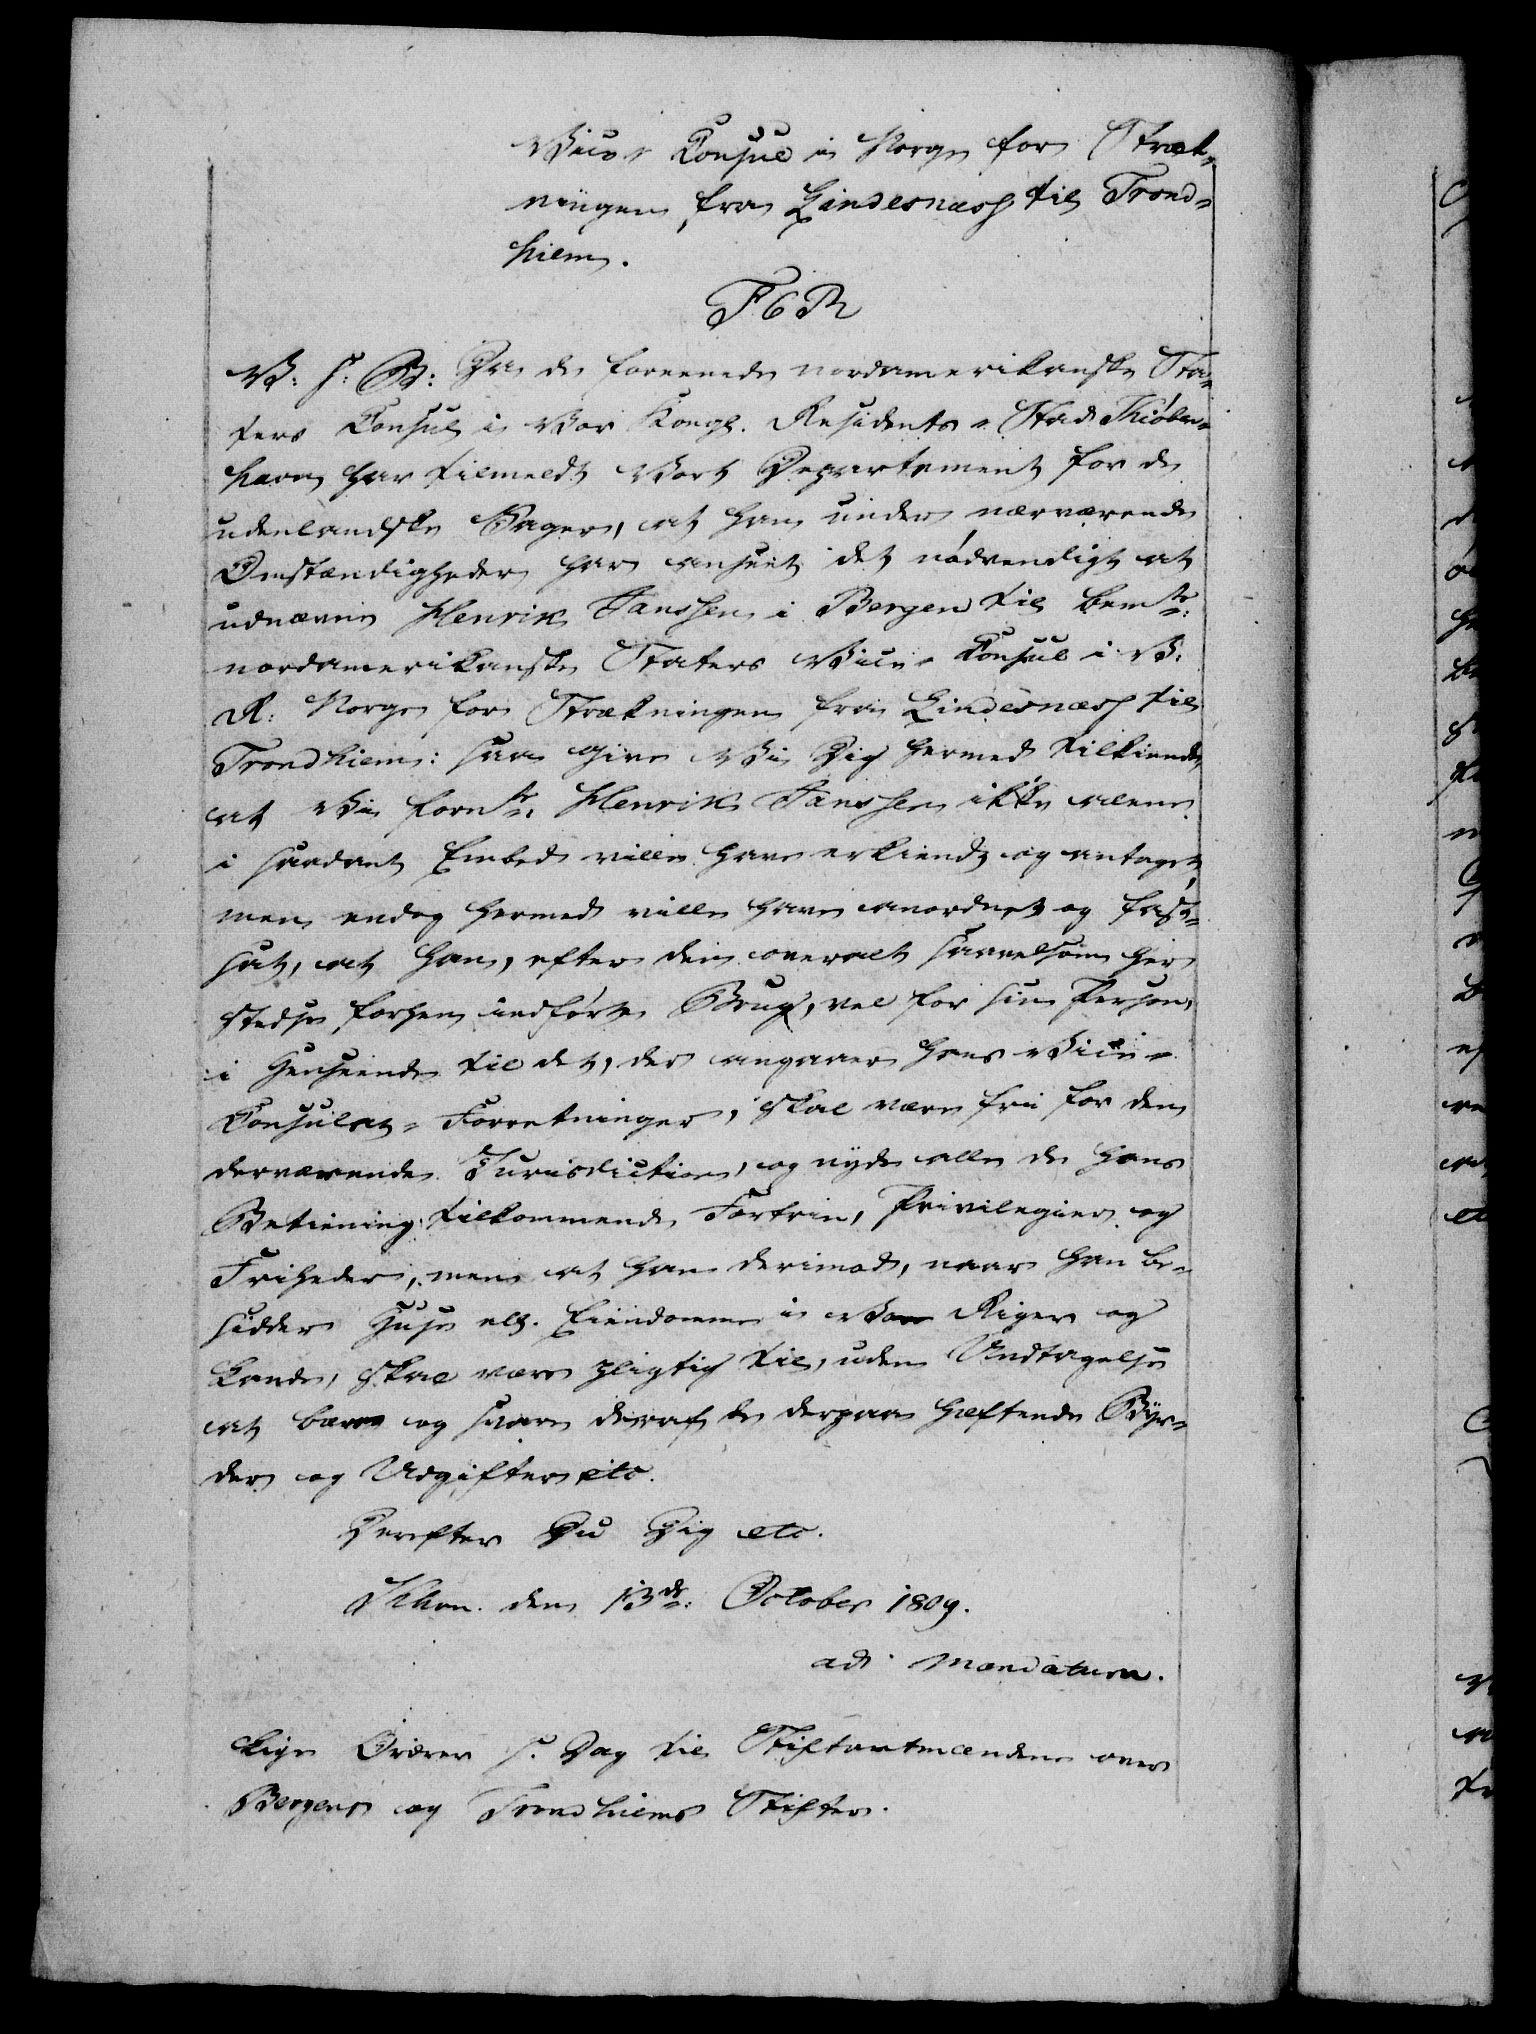 Vice-Consul i Norge for Stræk-
ningen fra Lindesnæss til Trond-
hiem.
F6R
V: S: G: Da de foreenede nordamerikanske Sta-
ters Consul i Vor Kongl. Residents-Stad Kiöben-
havn har tilmeldt Vort Departement for de
udenlandske Sager, at han under nærværende
Omstændigheder har anseet det nödvendigt at
udnævne Henrik Janssen i Bergen til bemte:
nordamerikanske Staters Vice-Consul i V.
R: Norge for Strækningen fra Lindesnæss til
Trondhiem: saa give Vi Dig hermed tilkiende,
at Vi fornte. Henrik Janssen ikke alene
i saadant Embede ville have erkiendt og antaget,
men endog hermed ville have anordnet og fast-
sat, at han, efter den overalt saavelsom her-
stedse forhen indförte Brug, vel for sin Person,
i Henseende til det, der angaaer hans Vice-
Consulat-Forretninger, skal være frie for den
derværende Jurisdiction, og nyde alle de hans
Betiening tilkommende Fortrin, Privilegier og
Friheder, men at han derimod, naar han be-
sidder Huse ell. Eiendomme i Vore Riger og
Lande, skal være pligtig til, uden Undtagelse
at bære og svare deraf de derpaa hæftende Byr-
der og Udgifter etc.
Derefter Du Dig etc.
Khvn. den 13de: October 1809.
ad mandatum.
Lige Ordrer s. Dag til Stiftamtmændene over
Bergens og Trondhiems Stifter.